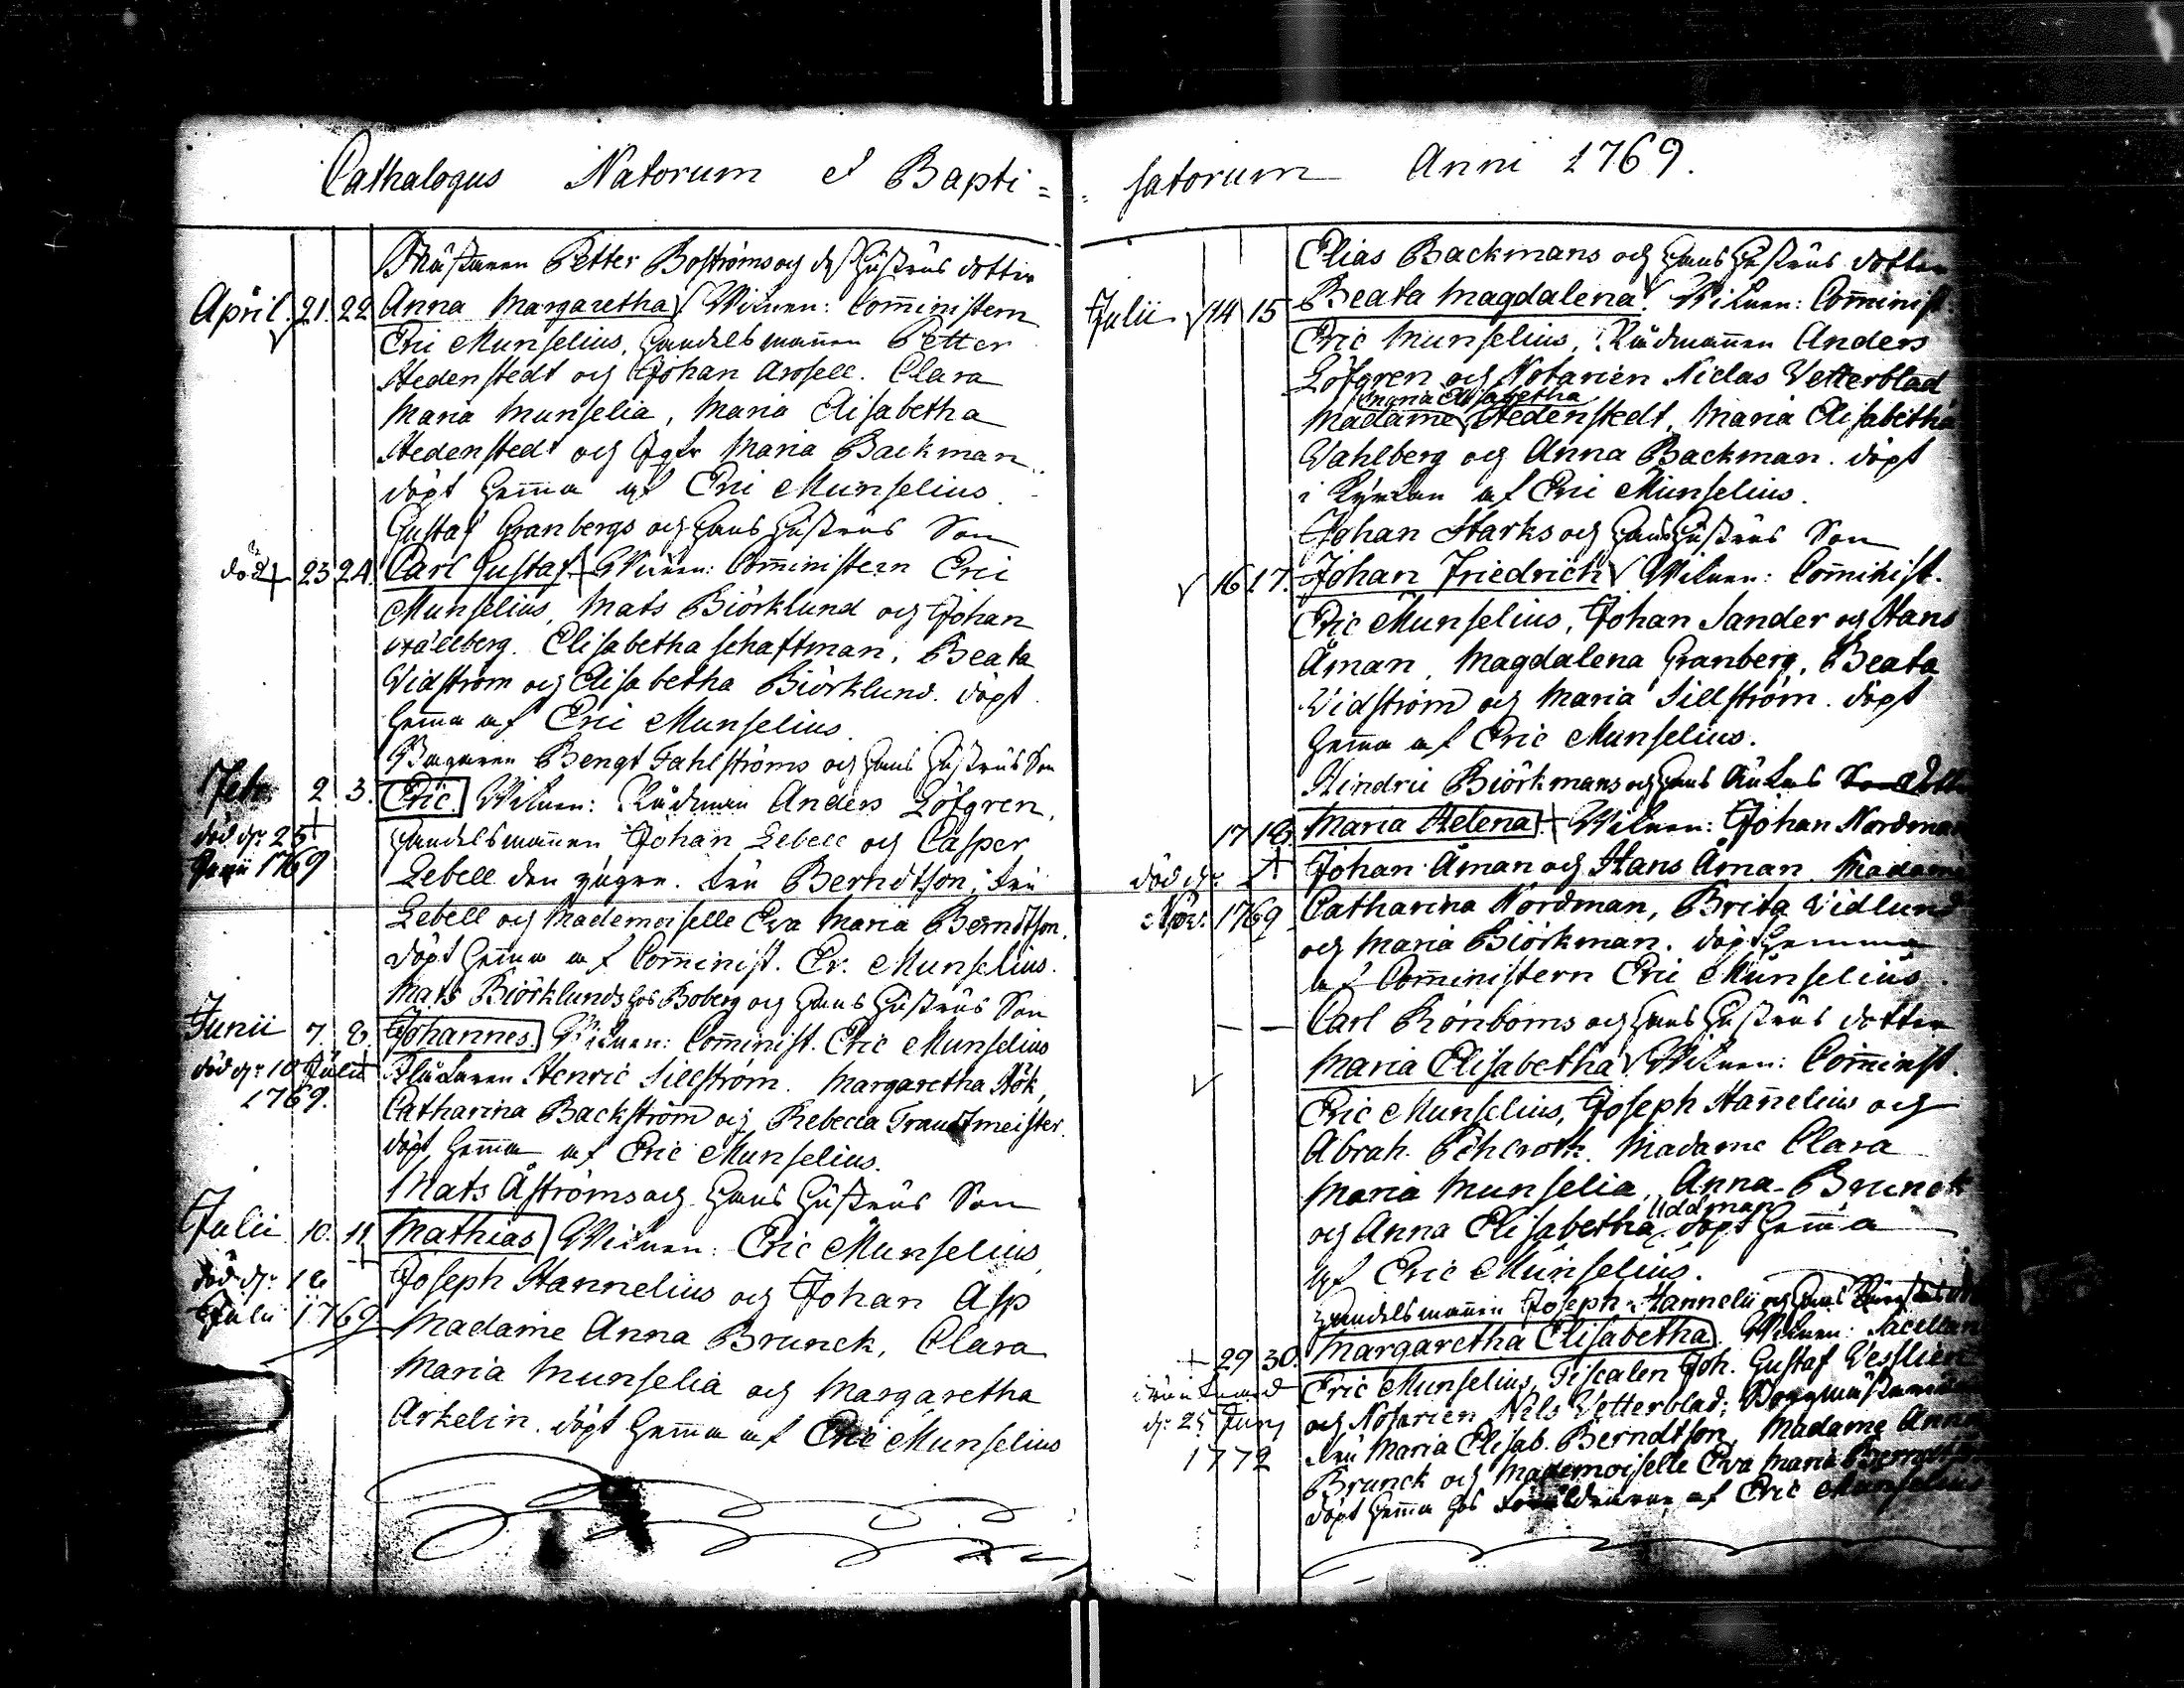 Cathalogus Natorum et Bapti=
Mästaren Petter Boströms och deß Hustrus dotter
April. 21. 22 Anna Margaretha Witnen: Comministern
Eric Munselius, Handelsmannen Petter
Hedenstedt och Johan Arosell. Clara
Maria Munselia, Maria Elisabetha
Hedenstedt och Jgfr Maria Backman
döpt hemma af Eric Munselius.
Gustaf Granbergs och hans Hustrus Son
död 23 24. Carl Gustaf Witnen: Comministern Eric
Munselius, Mats Biörklund och Johan
Elisabetha Schaftman, Beata
Vidström och Elisabetha Biörklund. döpt
hemma af Eric Munselius.
Bagaren Bengt Fahlströms och hans Hustrus Son
2 3. Eric. Witnen: Rådman Anders Löfgren,
död dn 25
1769
Handelsmannen Johan Lebell och Casper
Lebell den yngre. Fru Berndtson, Fru
Lebell och Mademoiselle Eva Maria Berndtson.
döpt hemma af Comminist. Er. Munselius.
Mats Biörklunds hos Boberg och hans Hustrus Son
Junii 7. 8. Johannes. Witnen: Comminist. Eric Munselius
död dn 10 Julii
1769.
Henric Sillström. Margaretha Hök,
Catharina Backström och Rebecca Trautmeister.
döpt hemma af Eric Munselius.
Mats Åströms och hans Hustrus Son
Julii 10. 11 Mathias Witnen: Eric Munselius,
död dn
Julii 1769
Joseph Hannelius och Johan Asp
Madame Anna Brunck, Clara
Maria Munselia och Margaretha
Arkelin. döpt hemma af Eric Munselius
satorum Anni 1769.
Elias Backmans och hans Hustrus dotter
Julii 14 15 Beata Magdalena. Witnen: Comminist.
Eric Munselius, Rådmannen Anders
Löfgren och Notarien Niclas Vetterblad
Maria Elisabetha
Madame Hedenstedt, Maria Elisabetha
Wahlberg och Anna Backman. döpt
i Kyrkan af Eric Munselius.
Johan Starks och hans Hustrus Son
16 17. Johan Friedrich Witnen: Comminist.
Eric Munselius, Johan Sander och Hans
Åman, Magdalena Granberg, Beata
Vidström och Maria Sillström. döpt
hemma af Eric Munselius.
Hindric Biörkmans och hans Son
17 18. Maria Helena. Witnen: Johan Nordman
död dn
1769
Johan Åman och Hans Åman. Madame
Catharina Nordman, Brita Vidlund
och Maria Biörkman. döpt hemma
af Comministern Eric Munselius.
— — Carl Rönboms och hans Hustrus dotter
Maria Elisabetha Witnen: Comminist.
Eric Munselius, Joseph Hannelius och
Abrah. Madame Clara
Maria Munselia, Anna Brunck
Uddman
och Anna Elisabetha döpt hemma
af Eric Munselius.
Handelsmannen Joseph Hannelii och hans
29 30. Margaretha Elisabetha. Witnen: Sacellan
dn 25 Junj
1772
Eric Munselius, Fiscalen Joh. Gustaf
och Notarien Nils Vetterblad;
Fru Maria Elisab. Berndtson, Madame Anna
Brunck och Mademoiselle Eva Maria Berndtson
döpt hemma hos Föräldrarne af Eric Munselius